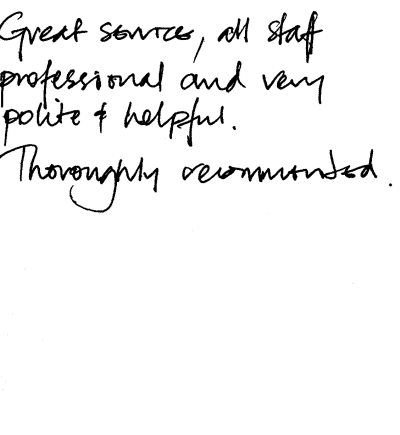 Great service, all staff
professional and very
polite & helpful.
Thoroughly recommended.